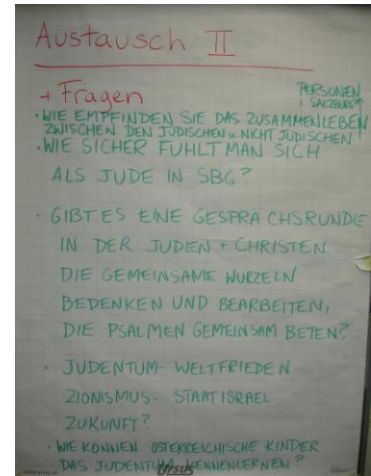 Austausch II
+ Fragen
PERSONEN
SALZBURGS
· WIE EMPFINDEN SIE DAS ZUSAMMENLEBEN
ZWISCHEN DEN JÜDISCHEN u. NICHT JÜDISCHEN
· WIE SICHER FÜHLT MAN SICH
ALS JUDE IN SBG?
· GIBT ES EINE GESPRÄCHSRUNDE
IN DER JUDEN + CHRISTEN
DIE GEMEINSAME WURZELN
BEDENKEN UND BEARBEITEN,
DIE PSALMEN GEMEINSAM BETEN?
· JUDENTUM - WELTFRIEDEN
ZIONISMUS - STAAT ISRAEL
ZUKUNFT?
· WIE KÖNNEN ÖSTERREICHISCHE KINDER
DAS JUDENTUM KENNENLERNEN?